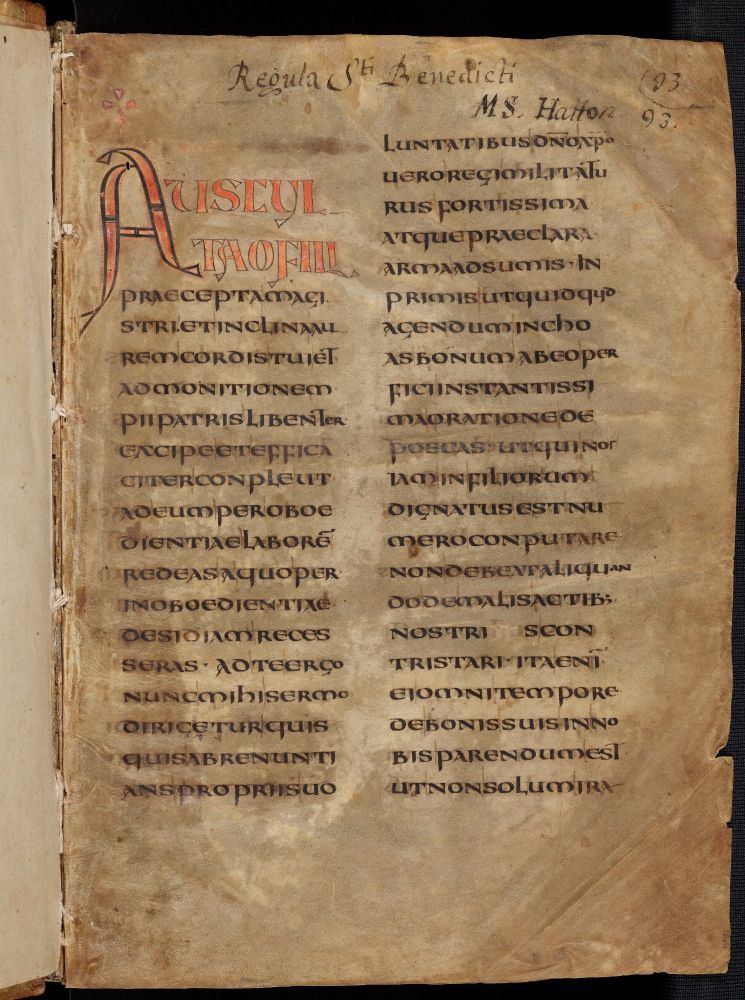 Regula Sti Benedicti
MS. Hatton
93
93.
AUSCUL
TAOFILI
PRAECEPTAMAGI
STRI·ETINCLINAAU
REMCORDISTUIET
ADMONITIONEM
PIIPATRISLIBENTER
EXCIPEETEFFICA
CITERCONPLEUT
ADEUMPEROBOE
DIENTIAELABORĒ
REDEASAQUOPER
INOBOEDIENTIAE
DESIDIAMRECES
SERAS· ADTEERGO
NUNCMIHISERMO
DIRIGETURQUIS
QUISABRENUNTI
ANSPROPRIISUO
LUNTATIBUSDN̄OXPO
UEROREGIMILITATU
RUSFORTISSIMA
ATQUEPRAECLARA
ARMAADSUMIS·IN
PRIMISUTQUIDQUID
AGENDUMINCHO
ASBONUMABEOPER
FICIINSTANTISSI
MAORATIONEDE
POSCAS·UTQUINOS
IAMINFILIORUM
DIGNATUSESTNU
MEROCONPUTARE
NONDEBEATALIQUAN
DODEMALISACTIB;
NOSTRI SCON
TRISTARI·ITAENĪ
EIOMNITEMPORE
DEBONISSUISINNO
BISPARENDUMEST
UTNONSOLUMIRA